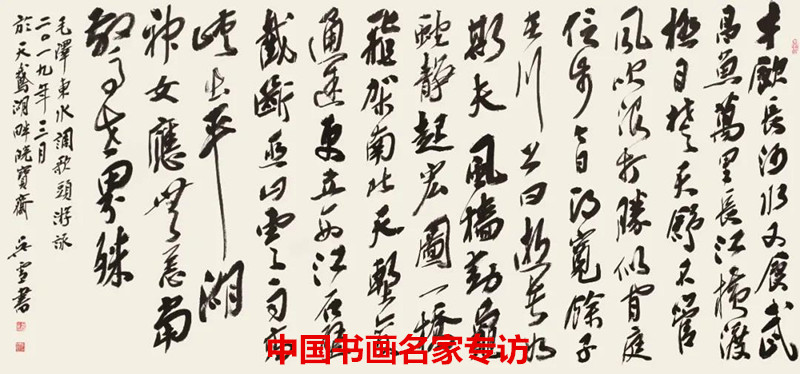 才飲長沙水又食武
昌魚萬里長江橫渡
極目楚天舒不管
風吹浪打勝似閒庭
信步今日得寬餘子
在川上曰逝者如
斯夫風檣動龜
蛇靜起宏圖一橋
飛架南北天塹變
通途更立西江石壁
截斷巫山雲雨高
峽出平湖
神女應無恙當
驚世界殊
毛澤東水調歌頭游泳
二〇一九年三月
於天鵝湖畔寶齋 吳雪書
中国书画名家专访